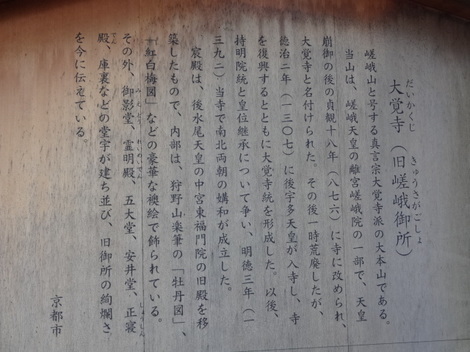 だいかくじ きゅうさがごしょ
大覚寺（旧嵯峨御所）
嵯峨山と号する真言宗大覚寺派の大本山である。
当山は、嵯峨天皇の離宮嵯峨院の一部で、天皇
崩御の後の貞観十八年（八七六）に寺に改められ、
大覚寺と名付けられた。その後一時荒廃したが、
徳治二年（一三〇七）に後宇多天皇が入寺し、寺
を復興するとともに大覚寺統を形成した。以後、
持明院統と皇位継承について争い、明徳三年（一
三九二）当寺で南北両朝の媾和が成立した。
宸殿は、後水尾天皇の中宮東福門院の旧殿を移
築したもので、内部は、狩野山楽筆の「牡丹図」、
「紅白梅図」などの豪華な襖絵で飾られている。
その外、御影堂、霊明殿、五大堂、安井堂、正寝
殿、庫裏などの堂宇が建ち並び、旧御所の絢爛さ
を今に伝えている。
京都市